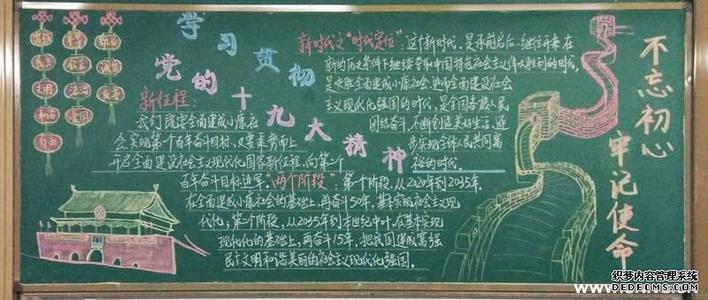 学习贯彻
党的十九大精神
不忘初心
牢记使命
新时代之"时代定位":这个新时代,是承前启后、继往开来、在
新的历史条件下继续夺取中国特色社会主义伟大胜利的时代,
是决胜全面建成小康社会、进而全面建设社会
主义现代化强国的时代,是全国各族人民
团结奋斗、不断创造美好生活、逐
步实现全体人民共同富
裕的时代
新征程:
我们既要全面建成小康社
会、实现第一个百年奋斗目标,又要乘势而上
开启全面建设社会主义现代化国家新征程,向第二个
百年奋斗目标进军。"两个阶段":第一个阶段,从2020年到2035年,
在全面建成小康社会的基础上,再奋斗15年,基本实现社会主义现
代化;第二个阶段,从2035年到本世纪中叶,在基本实现
现代化的基础上,再奋斗15年,把我国建成富强
民主文明和谐美丽的社会主义现代化强国。
富强
民主
文明
和谐
自由
平等
公正
法治
爱国
敬业
诚信
友善
织梦内容管理系统
DEDECMS.COM